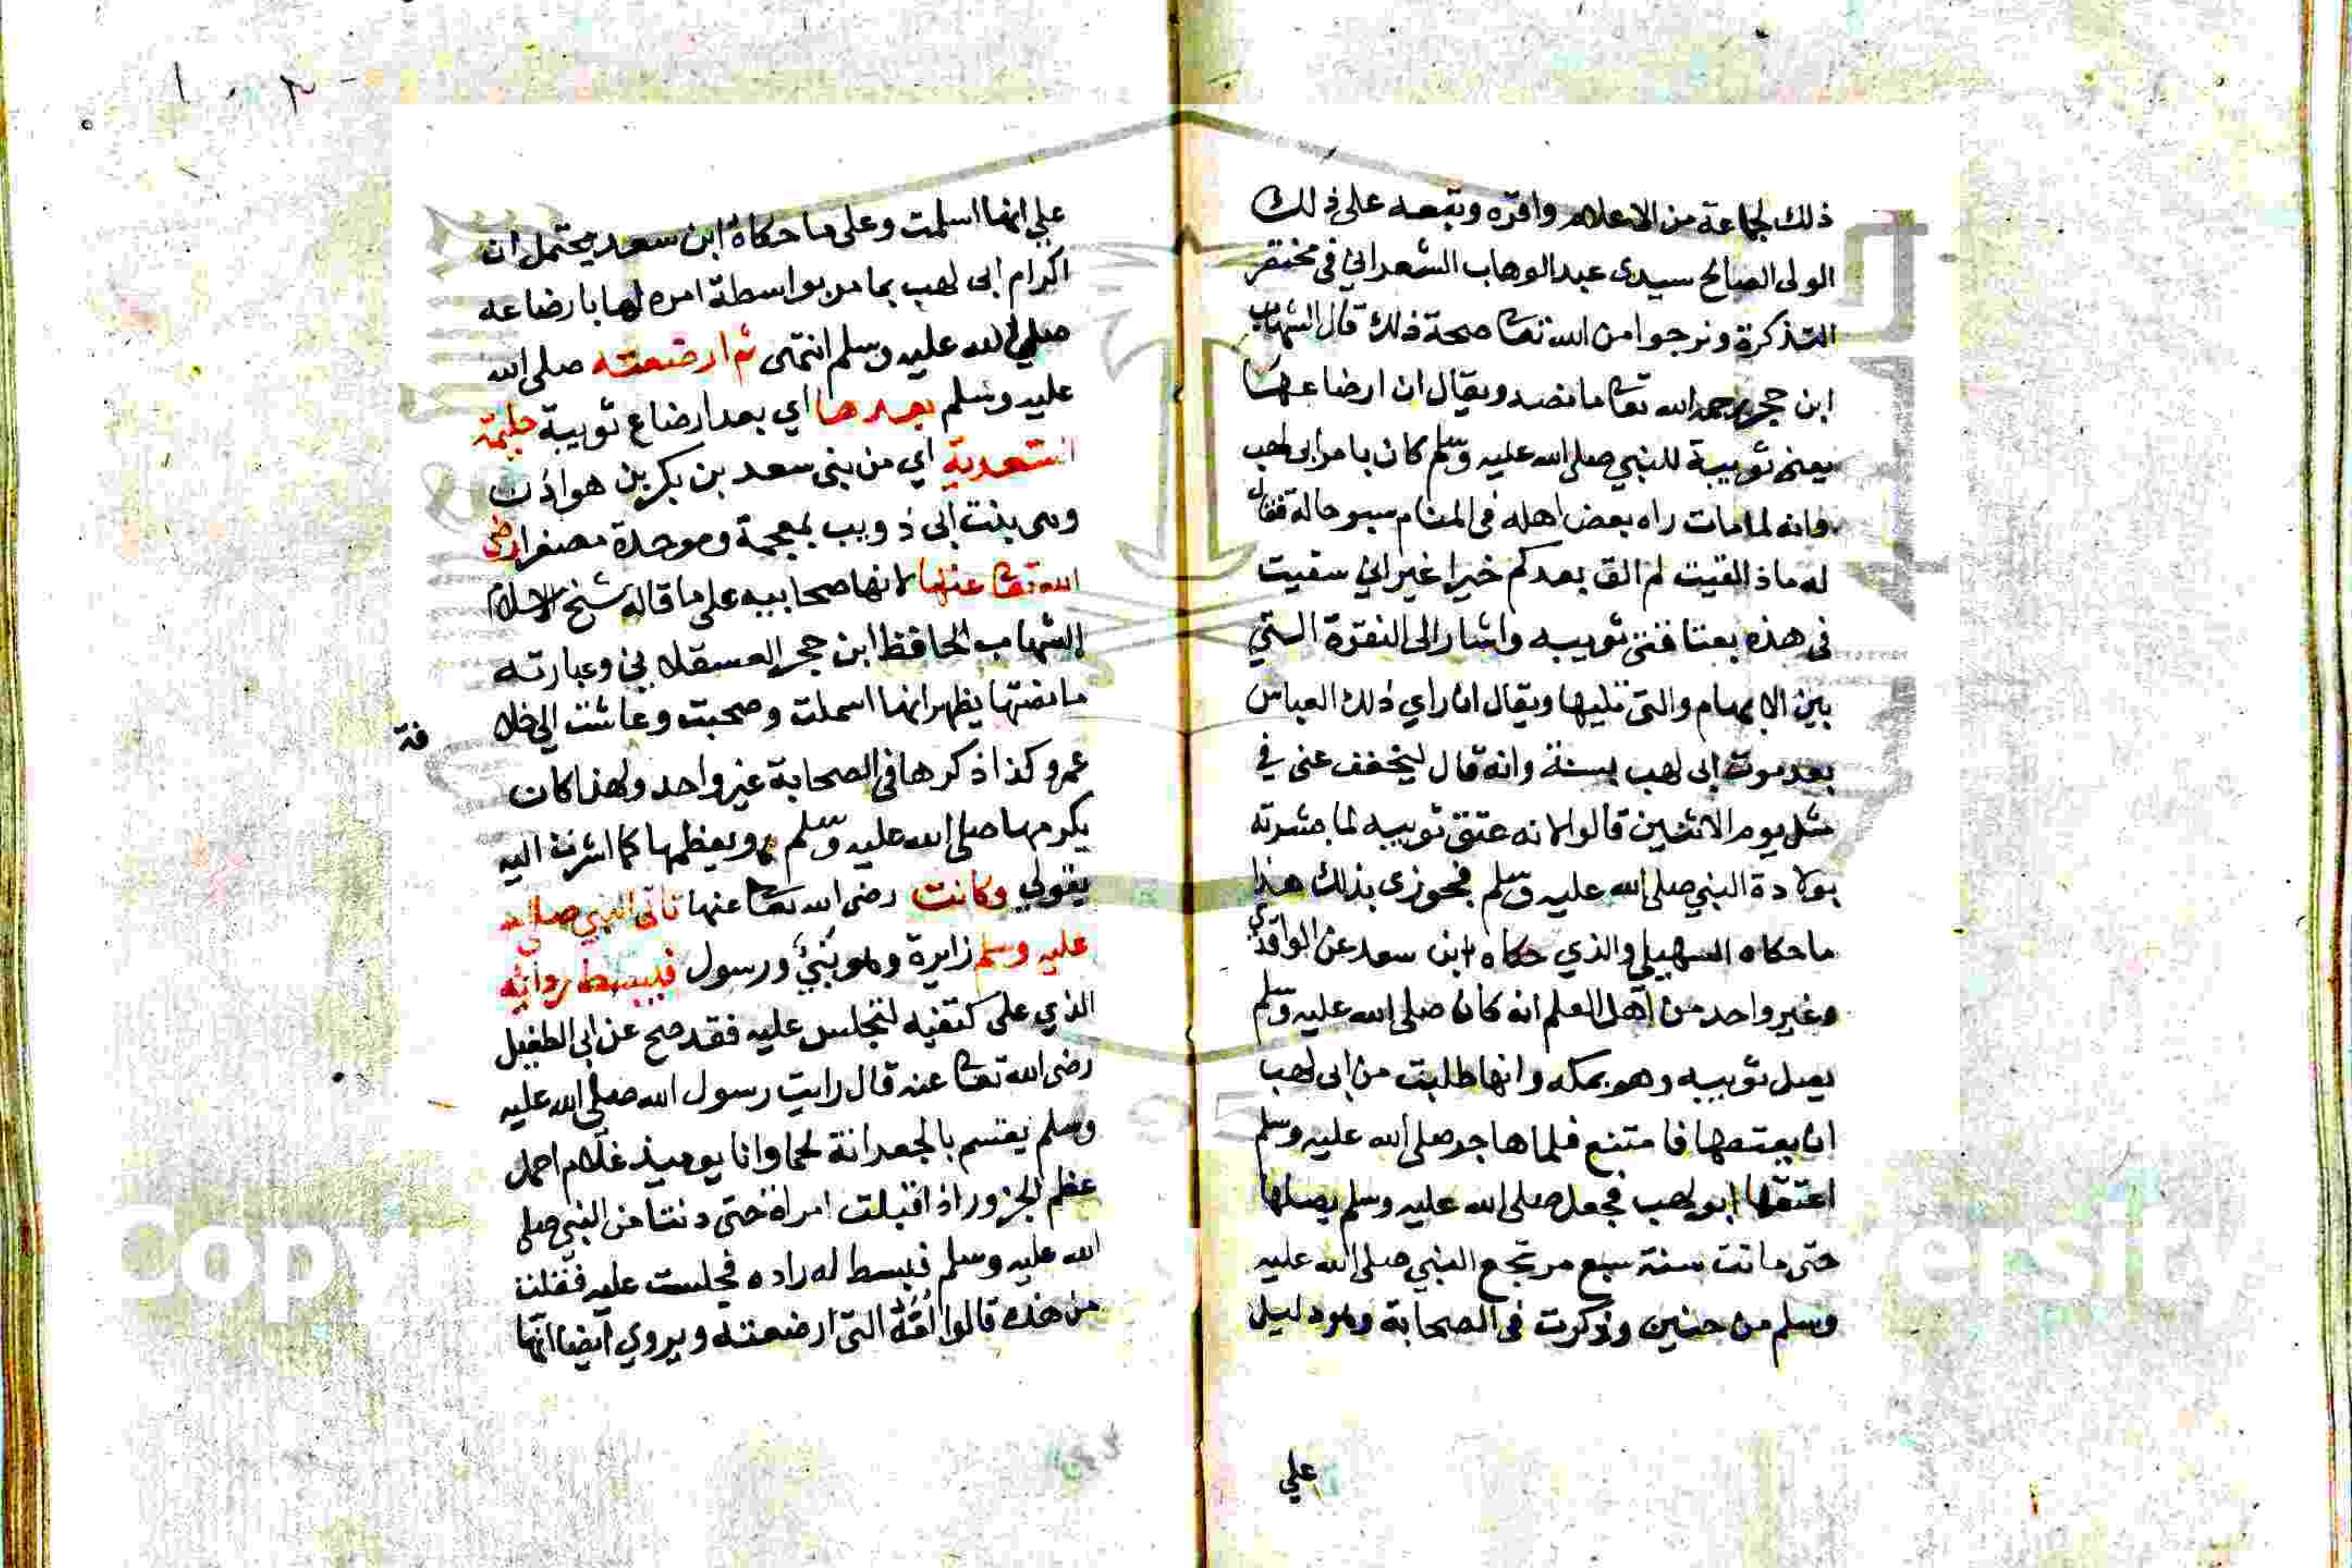 ذلك لجماعة من الاعلام واقره وتبعه على ذلك
الولى الصالح سيدى عبد الوهاب الشعراني في مختصر
التذكرة ونرجوا من الله تعا صحة ذلك قال الشهاب
ابن حجر رحمه الله تعا ما نصه ويقال ان ارضاعها
يعنى ثويبة للنبي صلى الله عليه وسلم كان بامر ابى لهب
وانه لما مات راه بعض اهله فى المنام بسو حالة فقال
له ماذا لقيت لم الق بعدكم خيرا غير اني سقيت
فى هذه بعتاقتى ثويبه واشار الى النقرة التي
بين الابهام والتى تليها ويقال ان راي ذلك العباس
بعد موت ابى لهب بسنة وانه قال ليخفف عنى في
مثل يوم الاثنين قالوا لانه عتق ثويبه لما بشرته
بولادة النبي صلى الله عليه وسلم فجوزى بذلك هذا
ما حكاه السهيلي والذي حكاه ابن سعد عن الواقدي
وغير واحد من اهل العلم انه كان صلى الله عليه وسلم
يصل ثويبه وهو بمكه وانها طلبت من ابى لهب
ان يعتقها فامتنع فلما هاجر صلى الله عليه وسلم
اعتقها ابو لهب فجعل صلى الله عليه وسلم يصلها
حتى ماتت سنة سبع مرتجع النبي صلى الله عليه
وسلم من حنين وذكرت فى الصحابة وهو دليل
علي
علي انها اسلمت وعلى ما حكاه ابن سعد يحتمل ان
اكرام ابى لهب بما مر بواسطة امره لها بارضاعه
صلى الله عليه وسلم انتهى ثم ارضعته صلى الله
عليه وسلم بعدها اي بعد ارضاع ثويبة حليمة
السعدية اي من بنى سعد بن بكر بن هوازن
وهى بنت ابى ذويب بمعجمة وموحدة مصغرا رضى
الله تعا عنها لانها صحابيه على ما قاله شيخ الاسلام
الشهاب الحافظ ابن حجر العسقلاني وعبارته
ما نصتها يظهر انها اسملت وصحبت وعاشت الى خلا
فة
عمر وكذا ذكرها فى الصحابة غير واحد ولهذا كان
يكرمها صلى الله عليه وسلم ويعظمها كما اشرت اليه
بقولي وكانت رضى الله تعا عنها تاتى النبي صلى الله
عليه وسلم زايرة وهو نبئ ورسول فيبسط ردائه
الذي على كتفيه لتجلس عليه فقد صح عن ابى الطفيل
رضى الله تعا عنه قال رايت رسول الله صلى الله عليه
وسلم يقسم بالجعرانة لحما وانا يوميذ غلام احمل
عظم الجزور اذ اقبلت امراة حتى دنت من النبي صلى
الله عليه وسلم فبسط له راده فجلست عليه فقلت
من هذه قالوا امه التى ارضعته ويروي ايضا انها